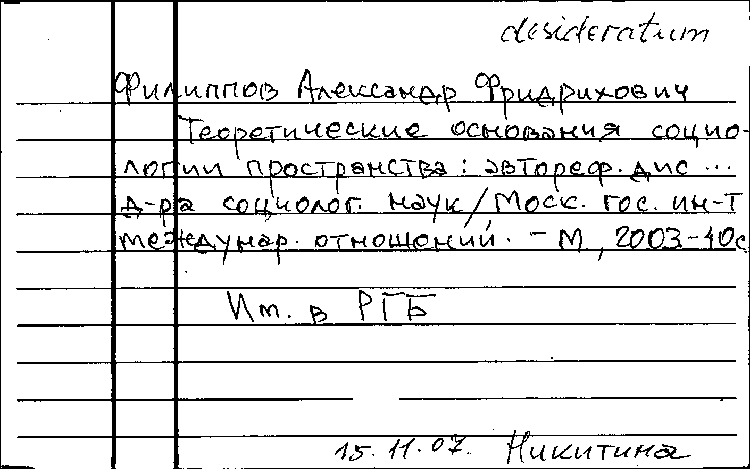 desideratum
Филиппов Александр Фридрихович
Теоретические основания социо-
логии пространства: автореф. дис ...
д-ра социолог. наук/Моск. гос. ин-т
междунар. отношений. - М, 2003-40с
Им. в РГБ
15.11.07. Никитина